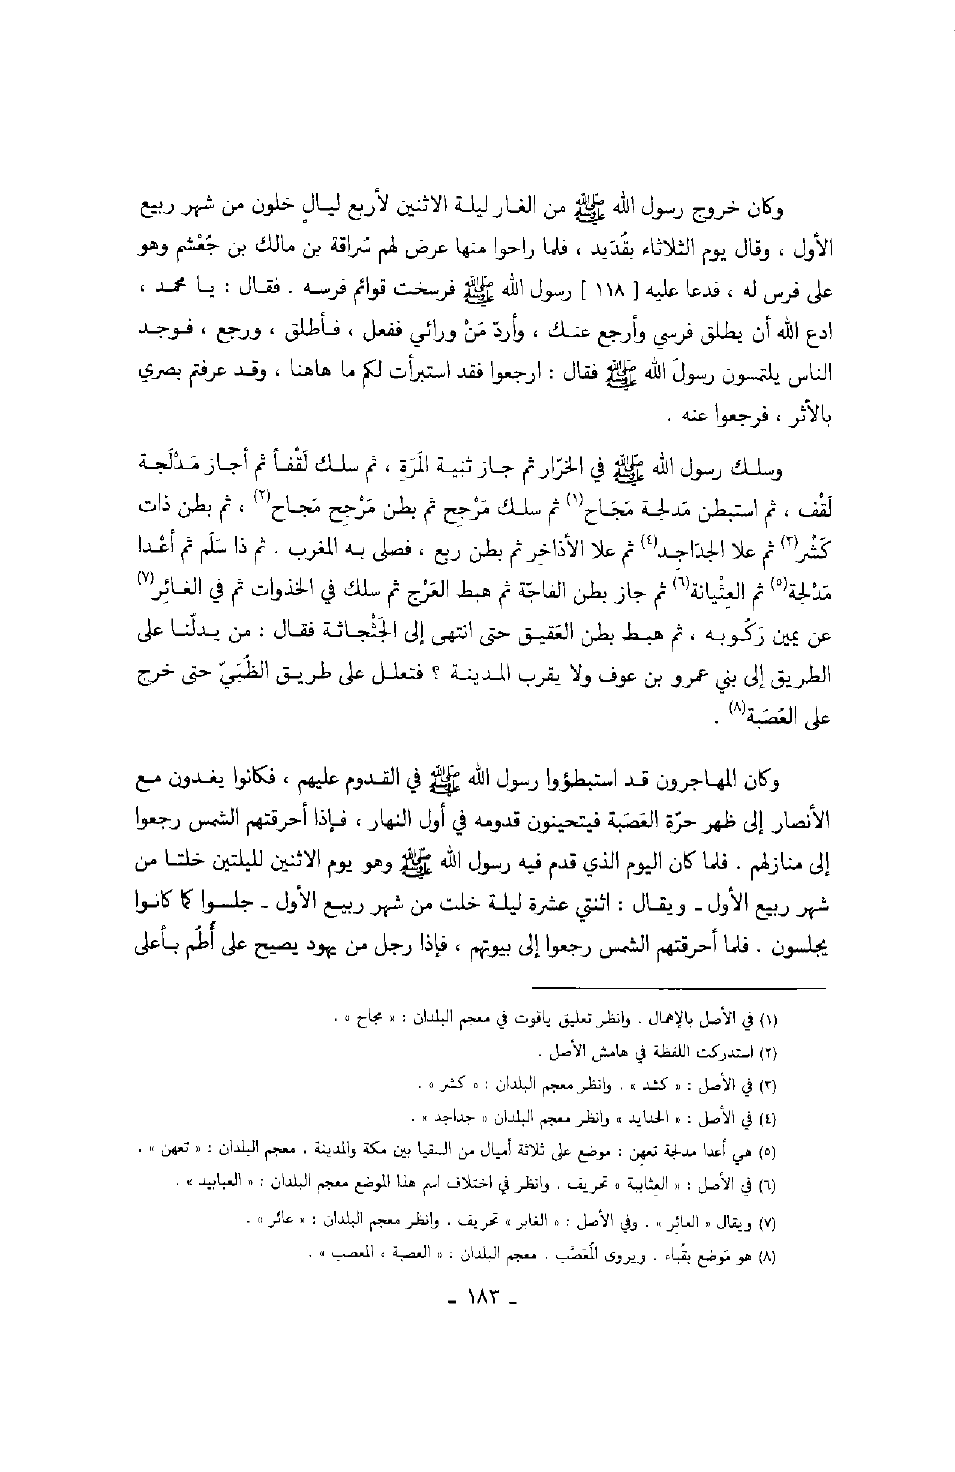 وكان خروج رسول الله ﷺ من الغار ليلة الاثنين لأربع ليالٍ خلون من شهر ربيع
الأول ، وقال يوم الثلاثاء بقُدَيد ، فلما راحوا منها عرض لهم سُراقة بن مالك بن جُعْشم وهو
على فرس له ، فدعا عليه [ ١١٨ ] رسول الله ﷺ فرسخت قوائم فرسه . فقال : يا محمد ،
ادع الله أن يطلق فرسي وأرجع عنك ، وأردّ مَنْ ورائي ففعل ، فأطلق ، ورجع ، فوجد
الناس يلتمسون رسولَ الله ﷺ فقال : ارجعوا فقد استبرأت لكم ما هاهنا ، وقد عرفتم بصري
بالأثر ، فرجعوا عنه .
وسلك رسول الله ﷺ في الخرّار ثم جاز ثنية المَرَة ، ثم سلك لَقْفاً ثم أجاز مَدْلَجة
لَقْف ، ثم استبطن مَدلجة مَجَاح(١) ثم سلك مَرْجِح ثم بطن مَرْجِح مَجاح(٢) ، ثم بطن ذات
كَشْر(٣) ثم علا الجدَاجِد(٤) ثم علا الأذاخِر ثم بطن ريع ، فصلى به المغرب . ثم ذا سَلَم ثم أعْدا
مَدْلجة(٥) ثم العِثْيانة(٦) ثم جاز بطن الفاجّة ثم هبط العَرْج ثم سلك في الخذوات ثم في الغائر(٧)
عن يمين رَكُوبه ، ثم هبط بطن العَقيق حتى انتهى إلى الجَثْجاثة فقال : من يدلّنا على
الطريق إلى بني عمرو بن عوف ولا يقرب المدينة ؟ فتعلل على طريق الظُبَيّ حتى خرج
على العُصَبة(٨) .
وكان المهاجرون قد استبطؤوا رسول الله ﷺ في القدوم عليهم ، فكانوا يغدون مع
الأنصار إلى ظهر حرّة العَصَبة فيتحينون قدومه في أول النهار ، فإذا أحرقتهم الشمس رجعوا
إلى منازلهم . فلما كان اليوم الذي قدم فيه رسول الله ﷺ وهو يوم الاثنين لليلتين خلتا من
شهر ربيع الأول ـ ويقال : اثنتي عشرة ليلة خلت من شهر ربيع الأول ـ جلسوا كما كانوا
يجلسون . فلما أحرقتهم الشمس رجعوا إلى بيوتهم ، فإذا رجل من يهود يصيح على أُطُم بأعلى
(١) في الأصل بالإهمال . وانظر تعليق ياقوت في معجم البلدان : « مجاح » .
(٢) استدركت اللفظة في هامش الأصل .
(٣) في الأصل : « كشد » . وانظر معجم البلدان : « كشر » .
(٤) في الأصل : « الحدايد » وانظر معجم البلدان « جداجد » .
(٥) هي أعدا مدلجة تعهن : موضع على ثلاثة أميال من السقيا بين مكة والمدينة . معجم البلدان : « تعهن » .
(٦) في الأصل : « العثابية » تحريف . وانظر في اختلاف اسم هذا الموضع معجم البلدان : « العبابيد » .
(٧) ويقال « العائر » . وفي الأصل : « الغابر » تحريف . وانظر معجم البلدان : « عائر » .
(٨) هو مَوضع بقُباء . ويروى المُعَصَّب . معجم البلدان : « العصبة ، المعصب » .
ـ ١٨٣ ـ